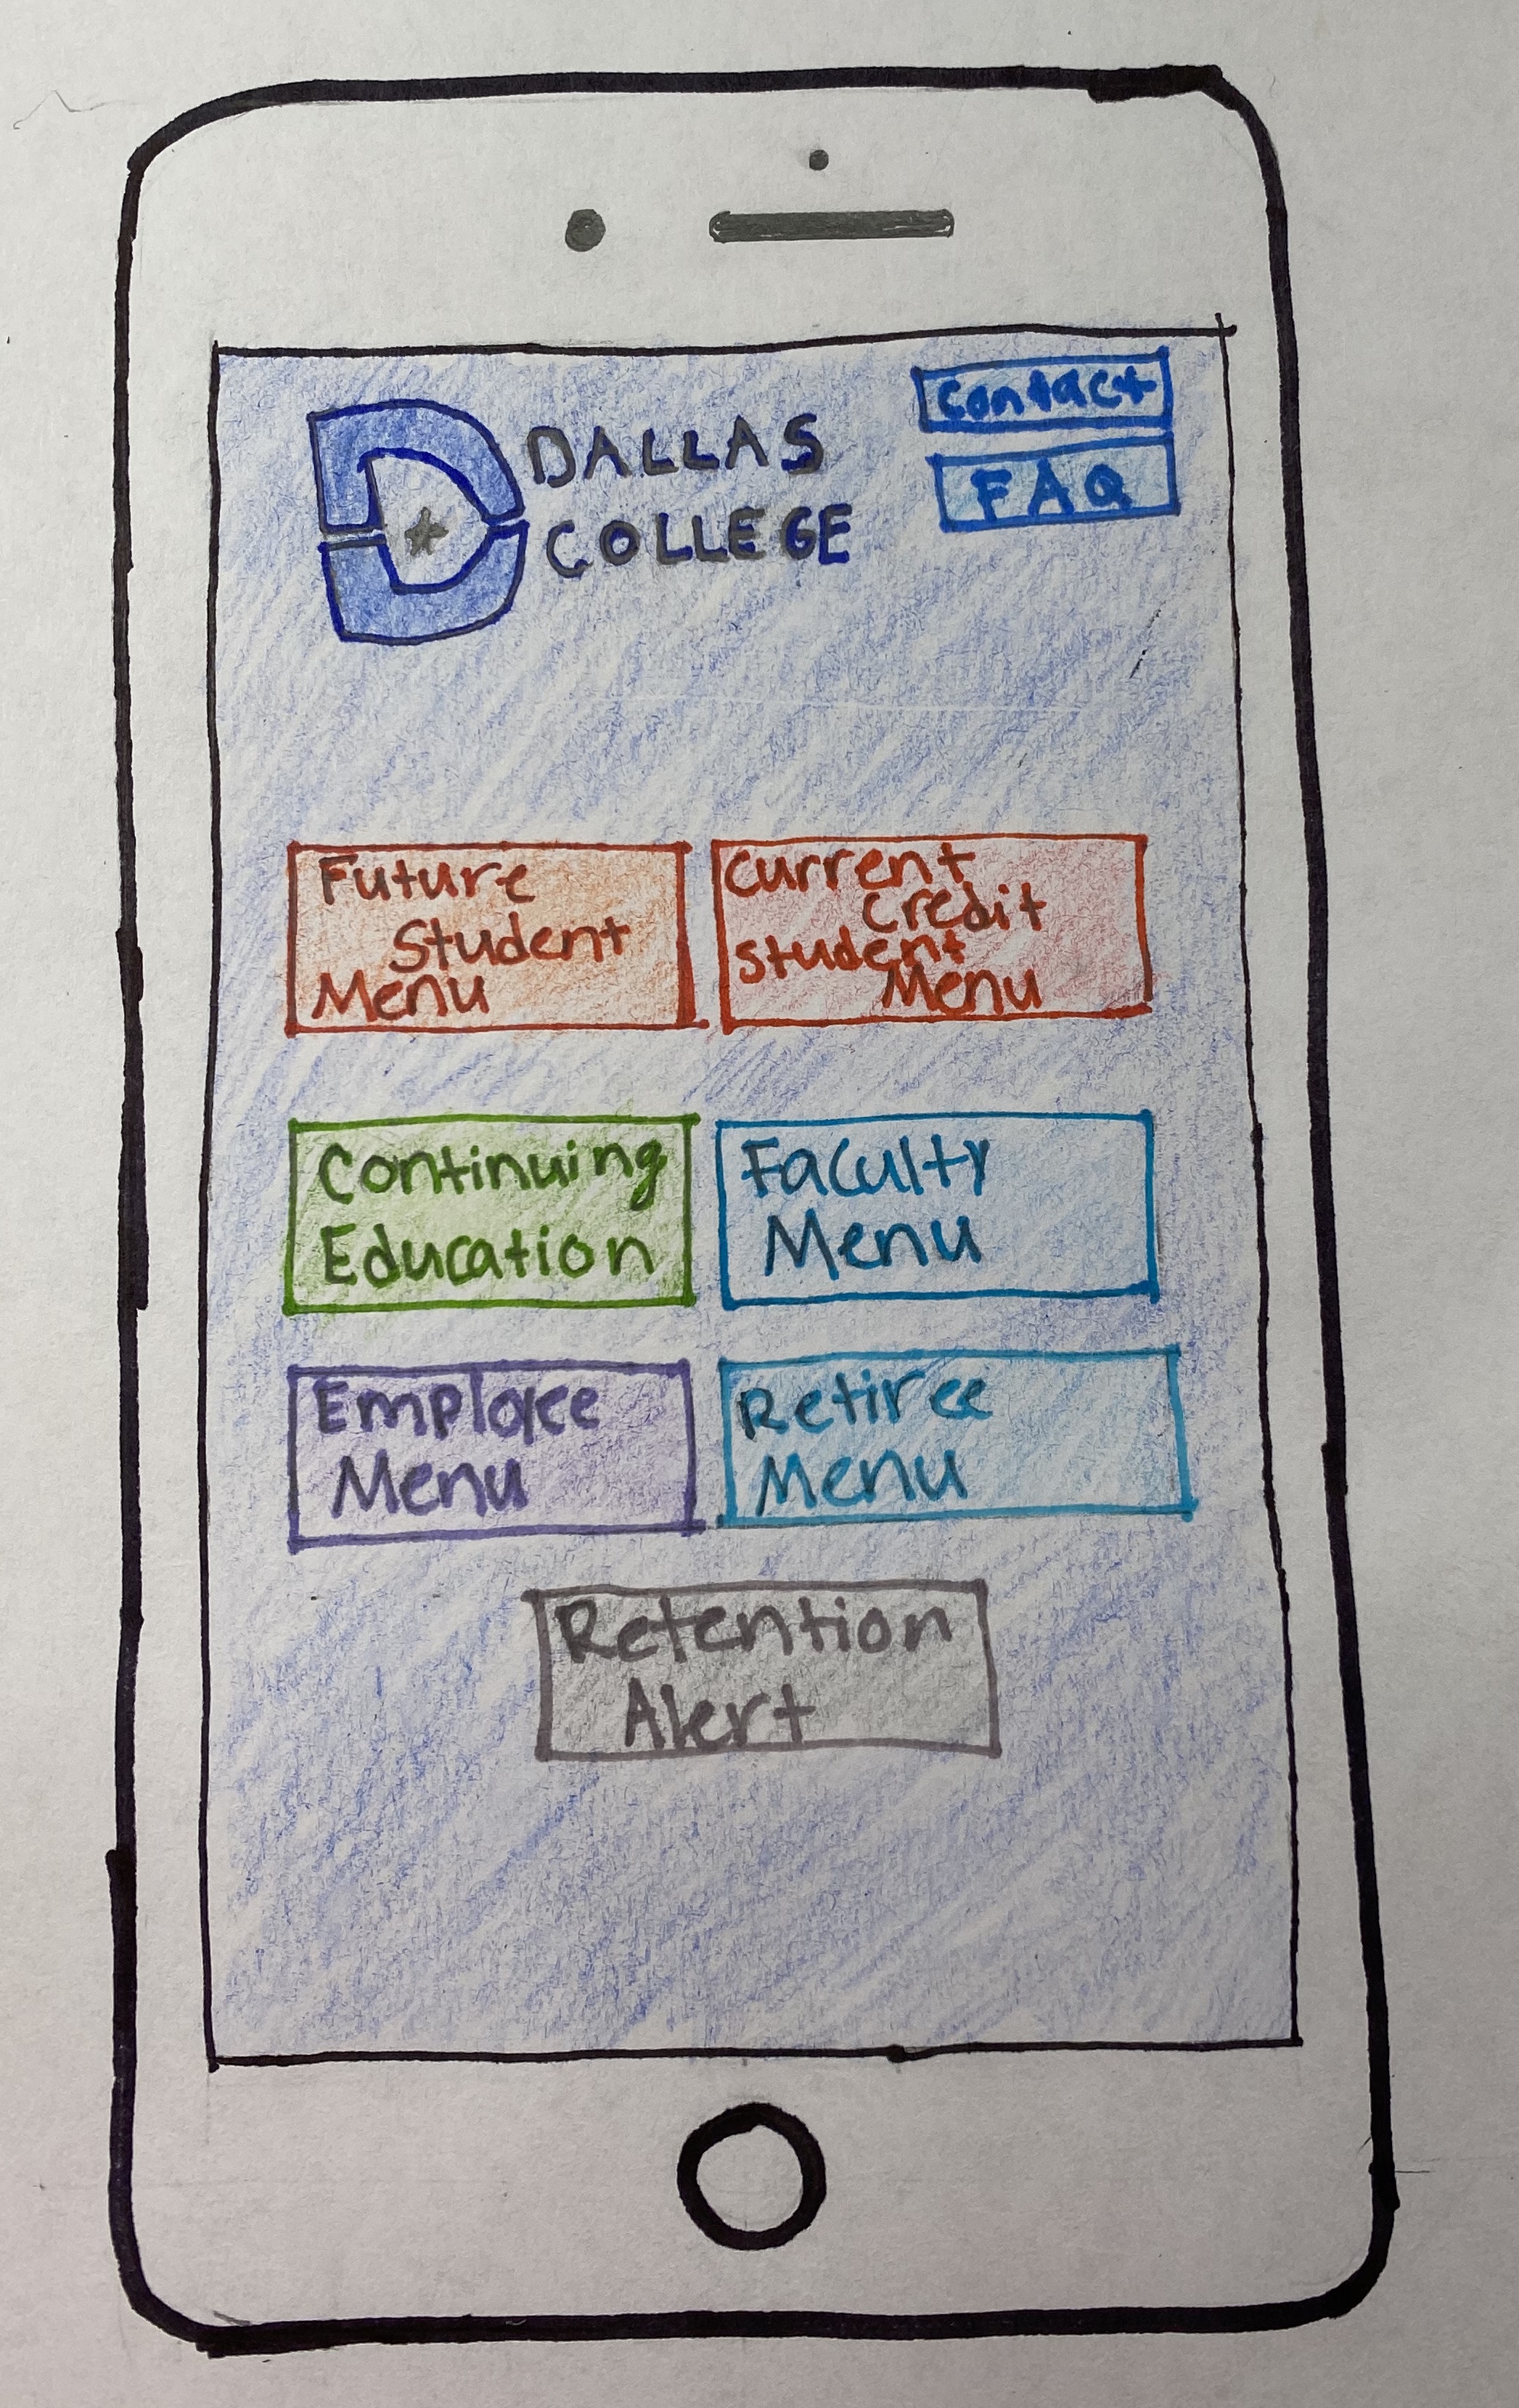 DALLAS
COLLEGE
Contact
FAQ
Future
Student
Menu
Current
Credit
Student
Menu
Continuing
Education
Faculty
Menu
Employee
Menu
Retiree
Menu
Retention
Alert